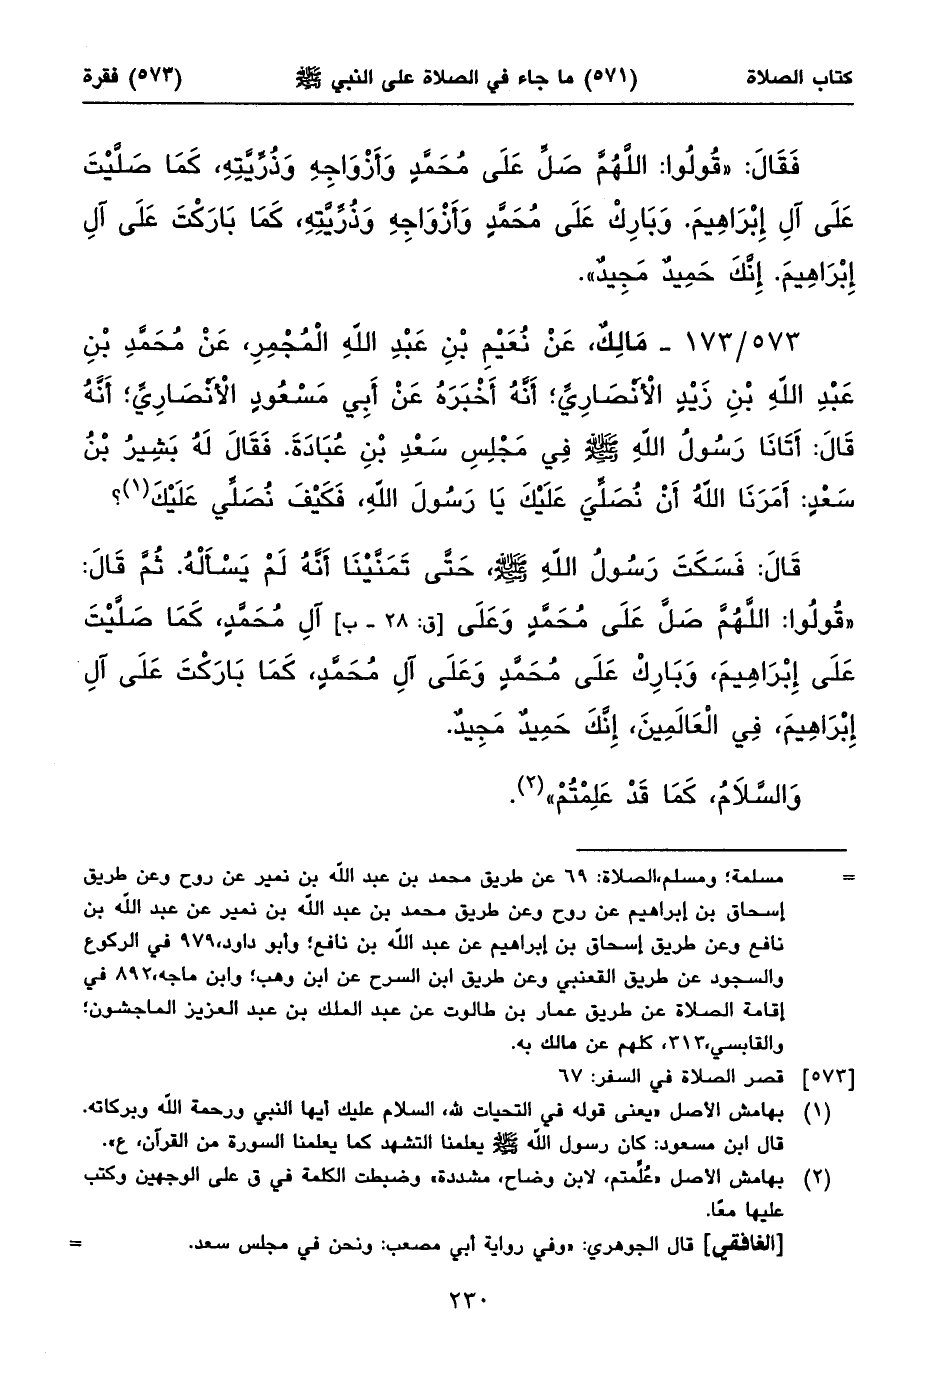 كتاب الصلاة (٥٧١) ما جاء في الصلاة على النبي ﷺ (٥٧٣) فقرة
فَقَالَ: «قُولُوا: اللَّهُمَّ صَلِّ عَلَى مُحَمَّدٍ وَأَزْوَاجِهِ وَذُرِّيَّتِهِ، كَمَا صَلَّيْتَ
عَلَى آلِ إِبْرَاهِيمَ. وَبَارِكْ عَلَى مُحَمَّدٍ وَأَزْوَاجِهِ وَذُرِّيَّتِهِ، كَمَا بَارَكْتَ عَلَى آلِ
إِبْرَاهِيمَ. إِنَّكَ حَمِيدٌ مَجِيدٌ».
١٧٣/٥٧٣ - مَالِكٌ، عَنْ نُعَيْمِ بْنِ عَبْدِ اللَّهِ الْمُجْمِرِ، عَنْ مُحَمَّدِ بْنِ
عَبْدِ اللَّهِ بْنِ زَيْدٍ الْأَنْصَارِيِّ؛ أَنَّهُ أَخْبَرَهُ عَنْ أَبِي مَسْعُودٍ الْأَنْصَارِيِّ؛ أَنَّهُ
قَالَ: أَتَانَا رَسُولُ اللَّهِ ﷺ فِي مَجْلِسِ سَعْدِ بْنِ عُبَادَةَ. فَقَالَ لَهُ بَشِيرُ بْنُ
سَعْدٍ: أَمَرَنَا اللَّهُ أَنْ نُصَلِّيَ عَلَيْكَ يَا رَسُولَ اللَّهِ، فَكَيْفَ نُصَلِّي عَلَيْكَ(١)؟
قَالَ: فَسَكَتَ رَسُولُ اللَّهِ ﷺ، حَتَّى تَمَنَّيْنَا أَنَّهُ لَمْ يَسْأَلْهُ. ثُمَّ قَالَ:
«قُولُوا: اللَّهُمَّ صَلِّ عَلَى مُحَمَّدٍ وَعَلَى [ق: ٢٨ - ب] آلِ مُحَمَّدٍ، كَمَا صَلَّيْتَ
عَلَى إِبْرَاهِيمَ، وَبَارِكْ عَلَى مُحَمَّدٍ وَعَلَى آلِ مُحَمَّدٍ، كَمَا بَارَكْتَ عَلَى آلِ
إِبْرَاهِيمَ، فِي الْعَالَمِينَ، إِنَّكَ حَمِيدٌ مَجِيدٌ.
وَالسَّلَامُ، كَمَا قَدْ عَلِمْتُمْ»(٢).
= مسلمة؛ ومسلم،الصلاة: ٦٩ عن طريق محمد بن عبد الله بن نمير عن روح وعن طريق
إسحاق بن إبراهيم عن روح وعن طريق محمد بن عبد الله بن نمير عن عبد الله بن
نافع وعن طريق إسحاق بن إبراهيم عن عبد الله بن نافع؛ وأبو داود،٩٧٩ في الركوع
والسجود عن طريق القعنبي وعن طريق ابن السرح عن ابن وهب؛ وابن ماجه،٨٩٢ في
إقامة الصلاة عن طريق عمار بن طالوت عن عبد الملك بن عبد العزيز الماجشون؛
والقابسي،٣١٣، كلهم عن مالك به.
[٥٧٣] قصر الصلاة في السفر: ٦٧
(١) بهامش الأصل «يعنى قوله في التحيات لله، السلام عليك أيها النبي ورحمة الله وبركاته.
قال ابن مسعود: كان رسول الله ﷺ يعلمنا التشهد كما يعلمنا السورة من القرآن، ع».
(٢) بهامش الأصل «عُلِّمتم، لابن وضاح، مشددة» وضبطت الكلمة في ق على الوجهين وكتب
عليها معًا.
[الغافقي] قال الجوهري: «وفي رواية أبي مصعب: ونحن في مجلس سعد. =
٢٣٠